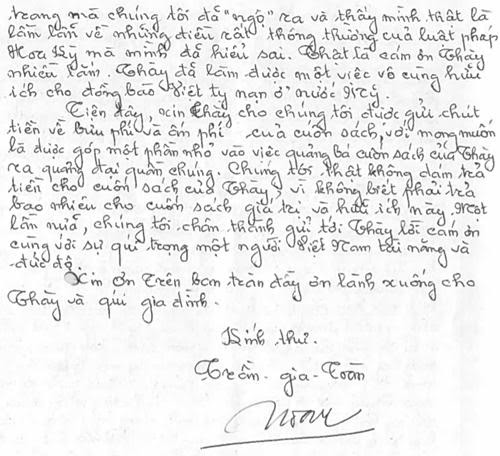 trang mà chúng tôi đã "ngộ" ra và thấy mình thật là
lầm lẫn về những điều rất thông thường của luật pháp
Hoa Kỳ mà mình đã hiểu sai. Thật là cám ơn Thầy
nhiều lắm. Thầy đã làm được một việc vô cùng hữu
ích cho đồng bào Việt tỵ nạn ở nước Mỹ.
Tiện đây, xin Thầy cho chúng tôi được gửi chút
tiền về bưu phí và ấm phí của cuốn sách, với mong muốn
là được góp một phần nhỏ vào việc quảng bá cuốn sách của Thầy
ra quảng đại quần chúng. Chúng tôi thật không dám trả
tiền cho cuốn sách của Thầy, vì không biết phải trả
bao nhiêu cho cuốn sách giá trị và hữu ích này. Một
lần nữa, chúng tôi chân thành gửi tới Thầy lời cám ơn
cùng với sự quí trọng một người Việt Nam tài năng và
đức độ.
Xin Ơn Trên ban tràn đầy ơn lành xuống cho
Thầy và quí gia đình.
Kính thư.
Trần - gia - Toàn